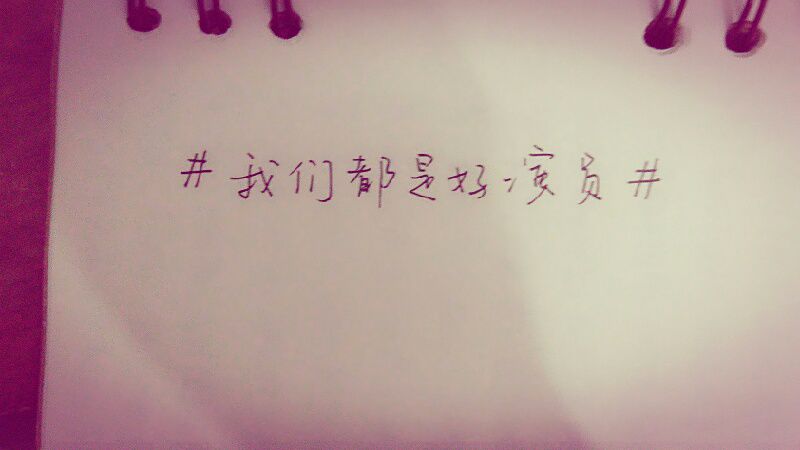 #我们都是好演员#